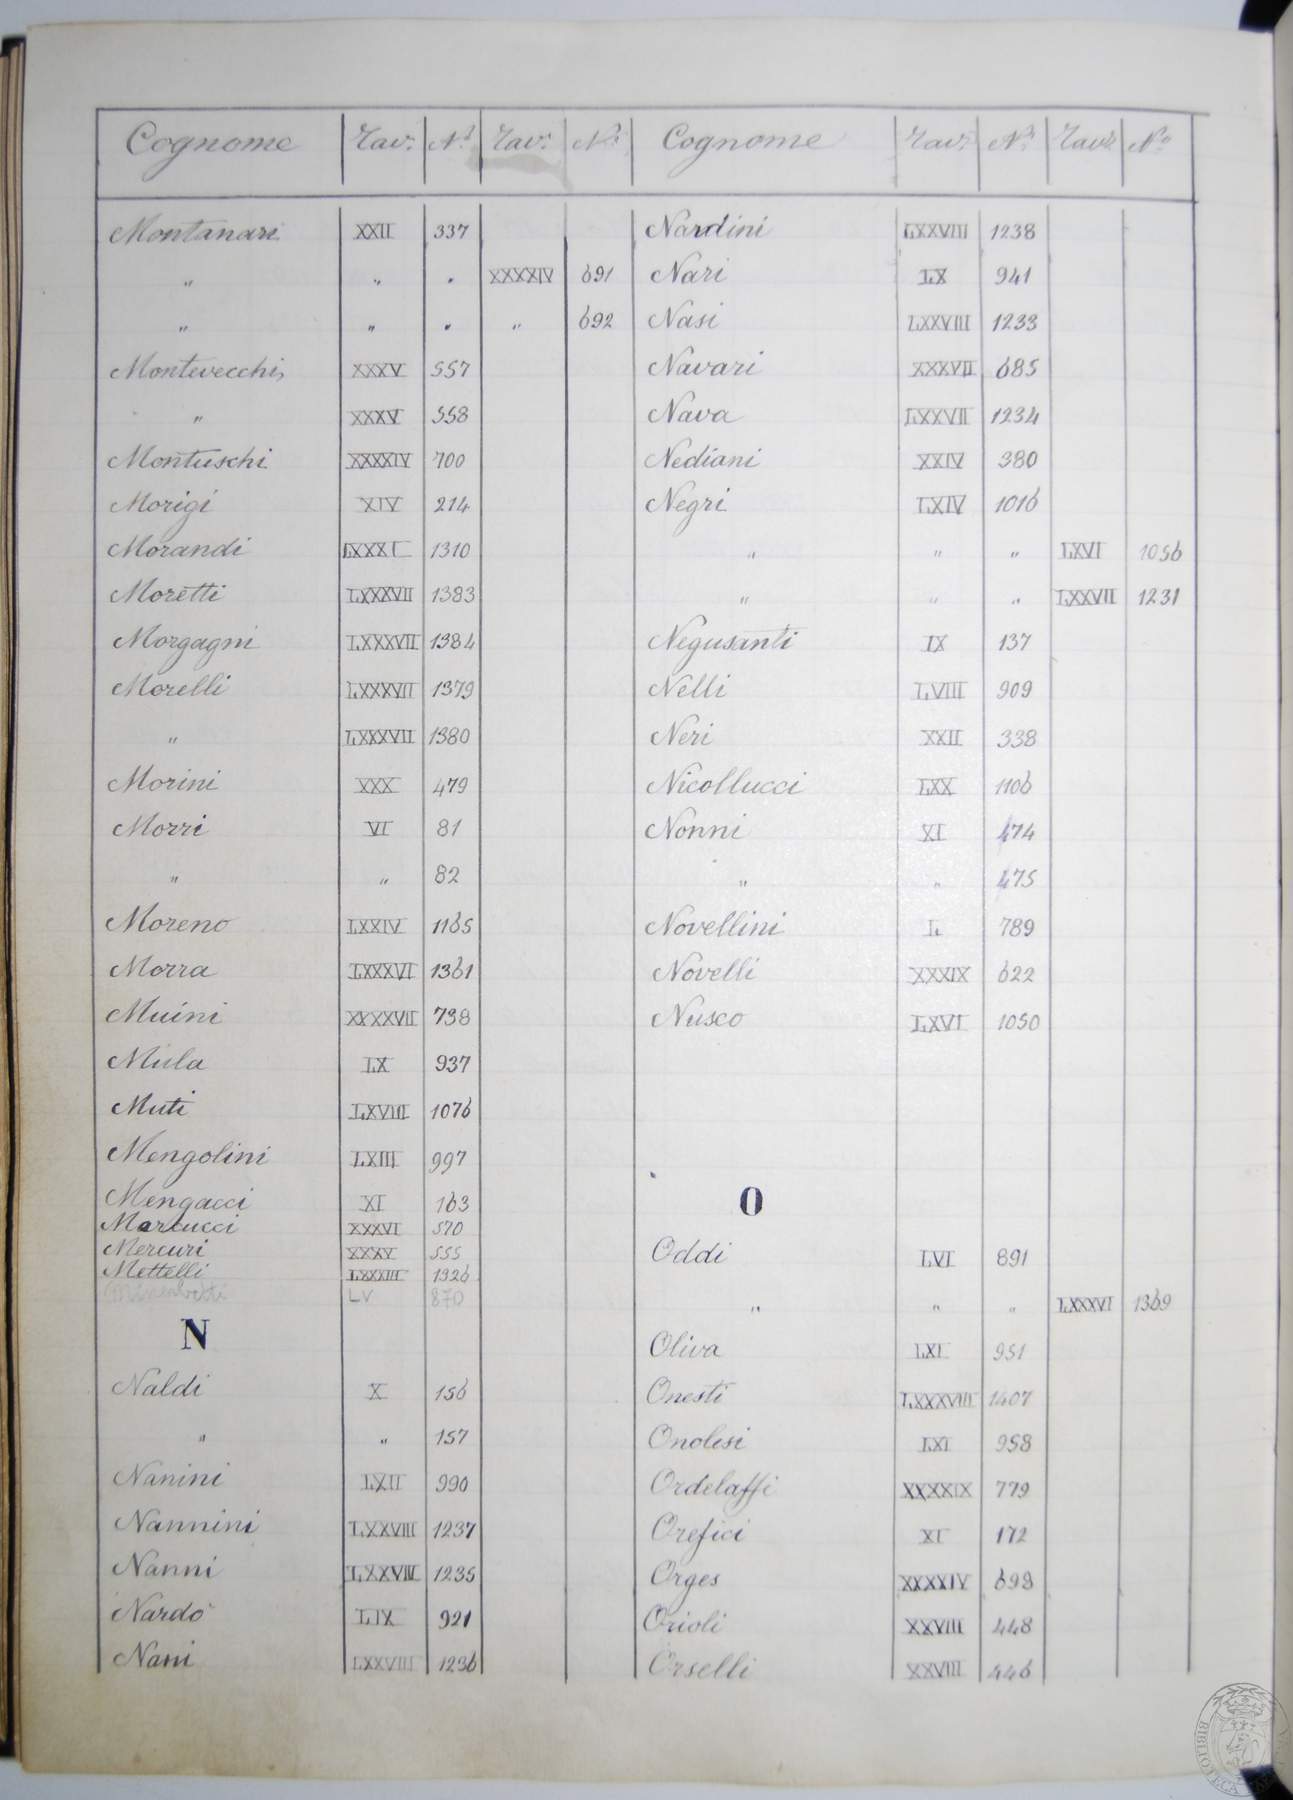 Cognome Tav. N.º Tav. N.º
Montanari XXII 337
" " " XXXXIV 691
" " " " 692
Montevecchi XXXV 557
" XXXV 558
Montuschi XXXXIV 700
Morigi XIV 214
Morandi LXXXI 1310
Moretti LXXXVII 1383
Morgagni LXXXVII 1384
Morelli LXXXVII 1379
" LXXXVII 1380
Morini XXX 479
Morri VI 81
" " 82
Moreno LXXIV 1165
Morra LXXXVI 1361
Muini XXXXVII 738
Mula LX 937
Muti LXVIII 1076
Mengolini LXIII 997
Mengacci XI 163
Marcucci XXXVI 570
Mercuri XXXV 555
Mettelli LXXXIII 1326
LV 870
N
Naldi X 156
" " 157
Nanini LXII 990
Nannini LXXVIII 1237
Nanni LXXVIII 1235
Nardo LIX 921
Nani LXXVIII 1236
Cognome Tav. N.º Tav. N.º
Nardini LXXVIII 1238
Nari LX 941
Nasi LXXVIII 1233
Navari XXXVII 685
Nava LXXVII 1234
Nediani XXIV 380
Negri LXIV 1016
" " " LXVI 1056
" " " LXXVII 1231
Negusanti IX 137
Nelli LVIII 909
Neri XXII 338
Nicollucci LXX 1106
Nonni XI 474
" " 475
Novellini L 789
Novelli XXXIX 622
Nusco LXVI 1050
O
Oddi LVI 891
" " " LXXXVI 1369
Oliva LXI 951
Onesti LXXXVIII 1407
Onolesi LXI 958
Ordelaffi XXXXIX 779
Orefici XI 172
Orges XXXXIV 699
Orioli XXVIII 448
Orselli XXVIII 446
BIBLIOTECA